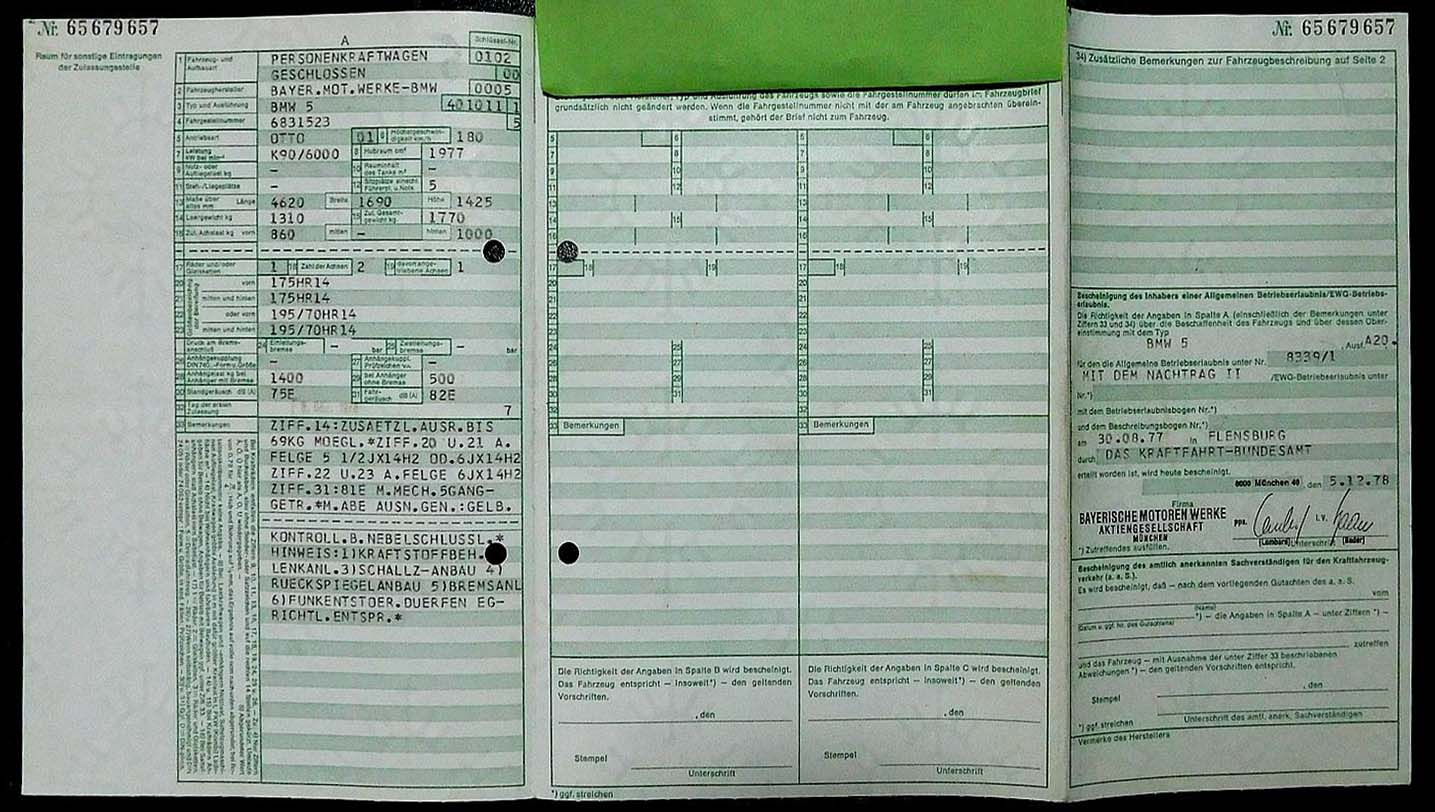 Nr. 65679657
Raum für sonstige Eintragungen
der Zulassungsstelle
A
Schlüssel-Nr.
1 Fahrzeug- und Aufbauart PERSONENKRAFTWAGEN 0102
GESCHLOSSEN 00
2 Fahrzeughersteller BAYER.MOT.WERKE-BMW 0005
3 Typ und Ausführung BMW 5 401011 1
4 Fahrgestellnummer 6831523 5
5 Antriebsart OTTO 01 6 Höchstgeschwindigkeit km/h 180
7 Leistung kW bei min K90/6000 8 Hubraum cm³ 1977
9 Nutz- oder Aufliegelast kg – 10 Rauminhalt des Tanks m³ –
11 Steh-/Liegeplätze – 12 Sitzplätze einschl. Führerpl. u. Nots. 5
13 Maße über alles mm Länge 4620 Breite 1690 Höhe 1425
14 Leergewicht kg 1310 15 Zul. Gesamtgewicht kg 1770
16 Zul. Achslast kg vorn 860 mitten – hinten 1000
17 Räder und/oder Gleisketten 1 18 Zahl der Achsen 2 19 davon angetriebene Achsen 1
20 vorn 175HR14
21 mitten und hinten 175HR14
22 oder vorn 195/70HR14
23 mitten und hinten 195/70HR14
Druck am Bremsanschluß 24 Einleitungsbremse – bar 25 Zweileitungsbremse – bar
26 Anhängekupplung DIN 740.., Form u. Größe – 27 Anhängekuppl. Prüfzeichen –
28 Anhängelast kg bei Anhänger mit Bremse 1400 29 bei Anhänger ohne Bremse 500
30 Standgeräusch dB (A) 75E 31 Fahrgeräusch dB (A) 82E
32 Tag der ersten Zulassung 7
33 Bemerkungen ZIFF.14:ZUSAETZL.AUSR.BIS
69KG MOEGL.*ZIFF.20 U.21 A.
FELGE 5 1/2JX14H2 OD.6JX14H2
ZIFF.22 U.23 A.FELGE 6JX14H2
ZIFF.31:81E M.MECH.5GANG-
GETR.*M.ABE AUSN.GEN.:GELB.
KONTROLL.B.NEBELSCHLUSSL.*
HINWEIS:1)KRAFTSTOFFBEH.
LENKANL.3)SCHALLZ-ANBAU 4)
RUECKSPIEGELANBAU 5)BREMSANL
6)FUNKENTSTOER.DUERFEN EG-
RICHTL.ENTSPR.*
Typ und Ausführung des Fahrzeugs sowie die Fahrgestellnummer dürfen im Fahrzeugbrief
grundsätzlich nicht geändert werden. Wenn die Fahrgestellnummer nicht mit der am Fahrzeug angebrachten überein-
stimmt, gehört der Brief nicht zum Fahrzeug.
5 6 5 6
7 8 7 8
9 10 9 10
11 12 11 12
13 13
14 15 14 15
16 16
17 18 19 17 18 19
20 20
21 21
22 22
23 23
24 25 24 25
26 27 26 27
28 29 28 29
30 31 30 31
32 32
33 Bemerkungen 33 Bemerkungen
Die Richtigkeit der Angaben in Spalte B wird bescheinigt.
Das Fahrzeug entspricht – insoweit*) – den geltenden
Vorschriften.
, den
Stempel
Unterschrift
*) ggf. streichen
Die Richtigkeit der Angaben in Spalte C wird bescheinigt.
Das Fahrzeug entspricht – insoweit*) – den geltenden
Vorschriften.
, den
Stempel
Unterschrift
Nr. 65679657
34) Zusätzliche Bemerkungen zur Fahrzeugbeschreibung auf Seite 2
Bescheinigung des Inhabers einer Allgemeinen Betriebserlaubnis/EWG-Betriebs-
erlaubnis.
Die Richtigkeit der Angaben in Spalte A (einschließlich der Bemerkungen unter
Ziffern 33 und 34) über die Beschaffenheit des Fahrzeugs und über dessen Über-
einstimmung mit dem Typ
BMW 5 , Ausf. A20.
für den die Allgemeine Betriebserlaubnis unter Nr. 8339/1
MIT DEM NACHTRAG II /EWG-Betriebserlaubnis unter
Nr.*)
mit dem Betriebserlaubnisbogen Nr.*)
und dem Beschreibungsbogen Nr.*)
am 30.08.77 in FLENSBURG
durch DAS KRAFTFAHRT-BUNDESAMT
erteilt worden ist, wird heute bescheinigt.
8000 München 40 , den 5.12.78
Firma
BAYERISCHE MOTOREN WERKE
AKTIENGESELLSCHAFT
MÜNCHEN
ppa. i.V.
(Lombard) Unterschrift (Bader)
*) Zutreffendes ausfüllen.
Bescheinigung des amtlich anerkannten Sachverständigen für den Kraftfahrzeug-
verkehr (a. a. S.).
Es wird bescheinigt, daß – nach dem vorliegenden Gutachten des a. a. S.
vom
(Name)
*) – die Angaben in Spalte A – unter Ziffern *) –
Datum u. ggf. Nr. des Gutachtens)
zutreffen
und das Fahrzeug – mit Ausnahme der unter Ziffer 33 beschriebenen
Abweichungen *) – den geltenden Vorschriften entspricht.
, den
Stempel
*) ggf. streichen
Unterschrift des amtl. anerk. Sachverständigen
Vermerke des Herstellers